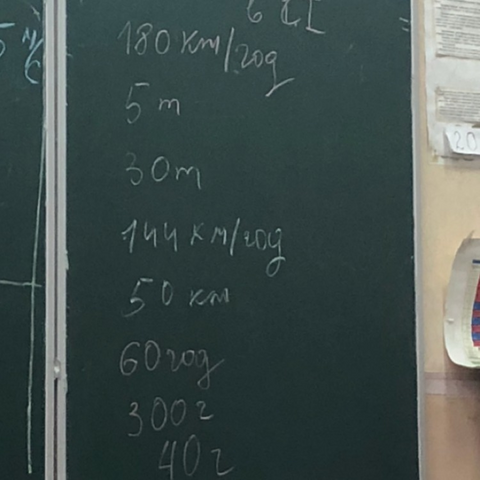 в СІ
180 км/год
5 т
30 т
144 км/год
50 км
60 год
300 г
40 г
20